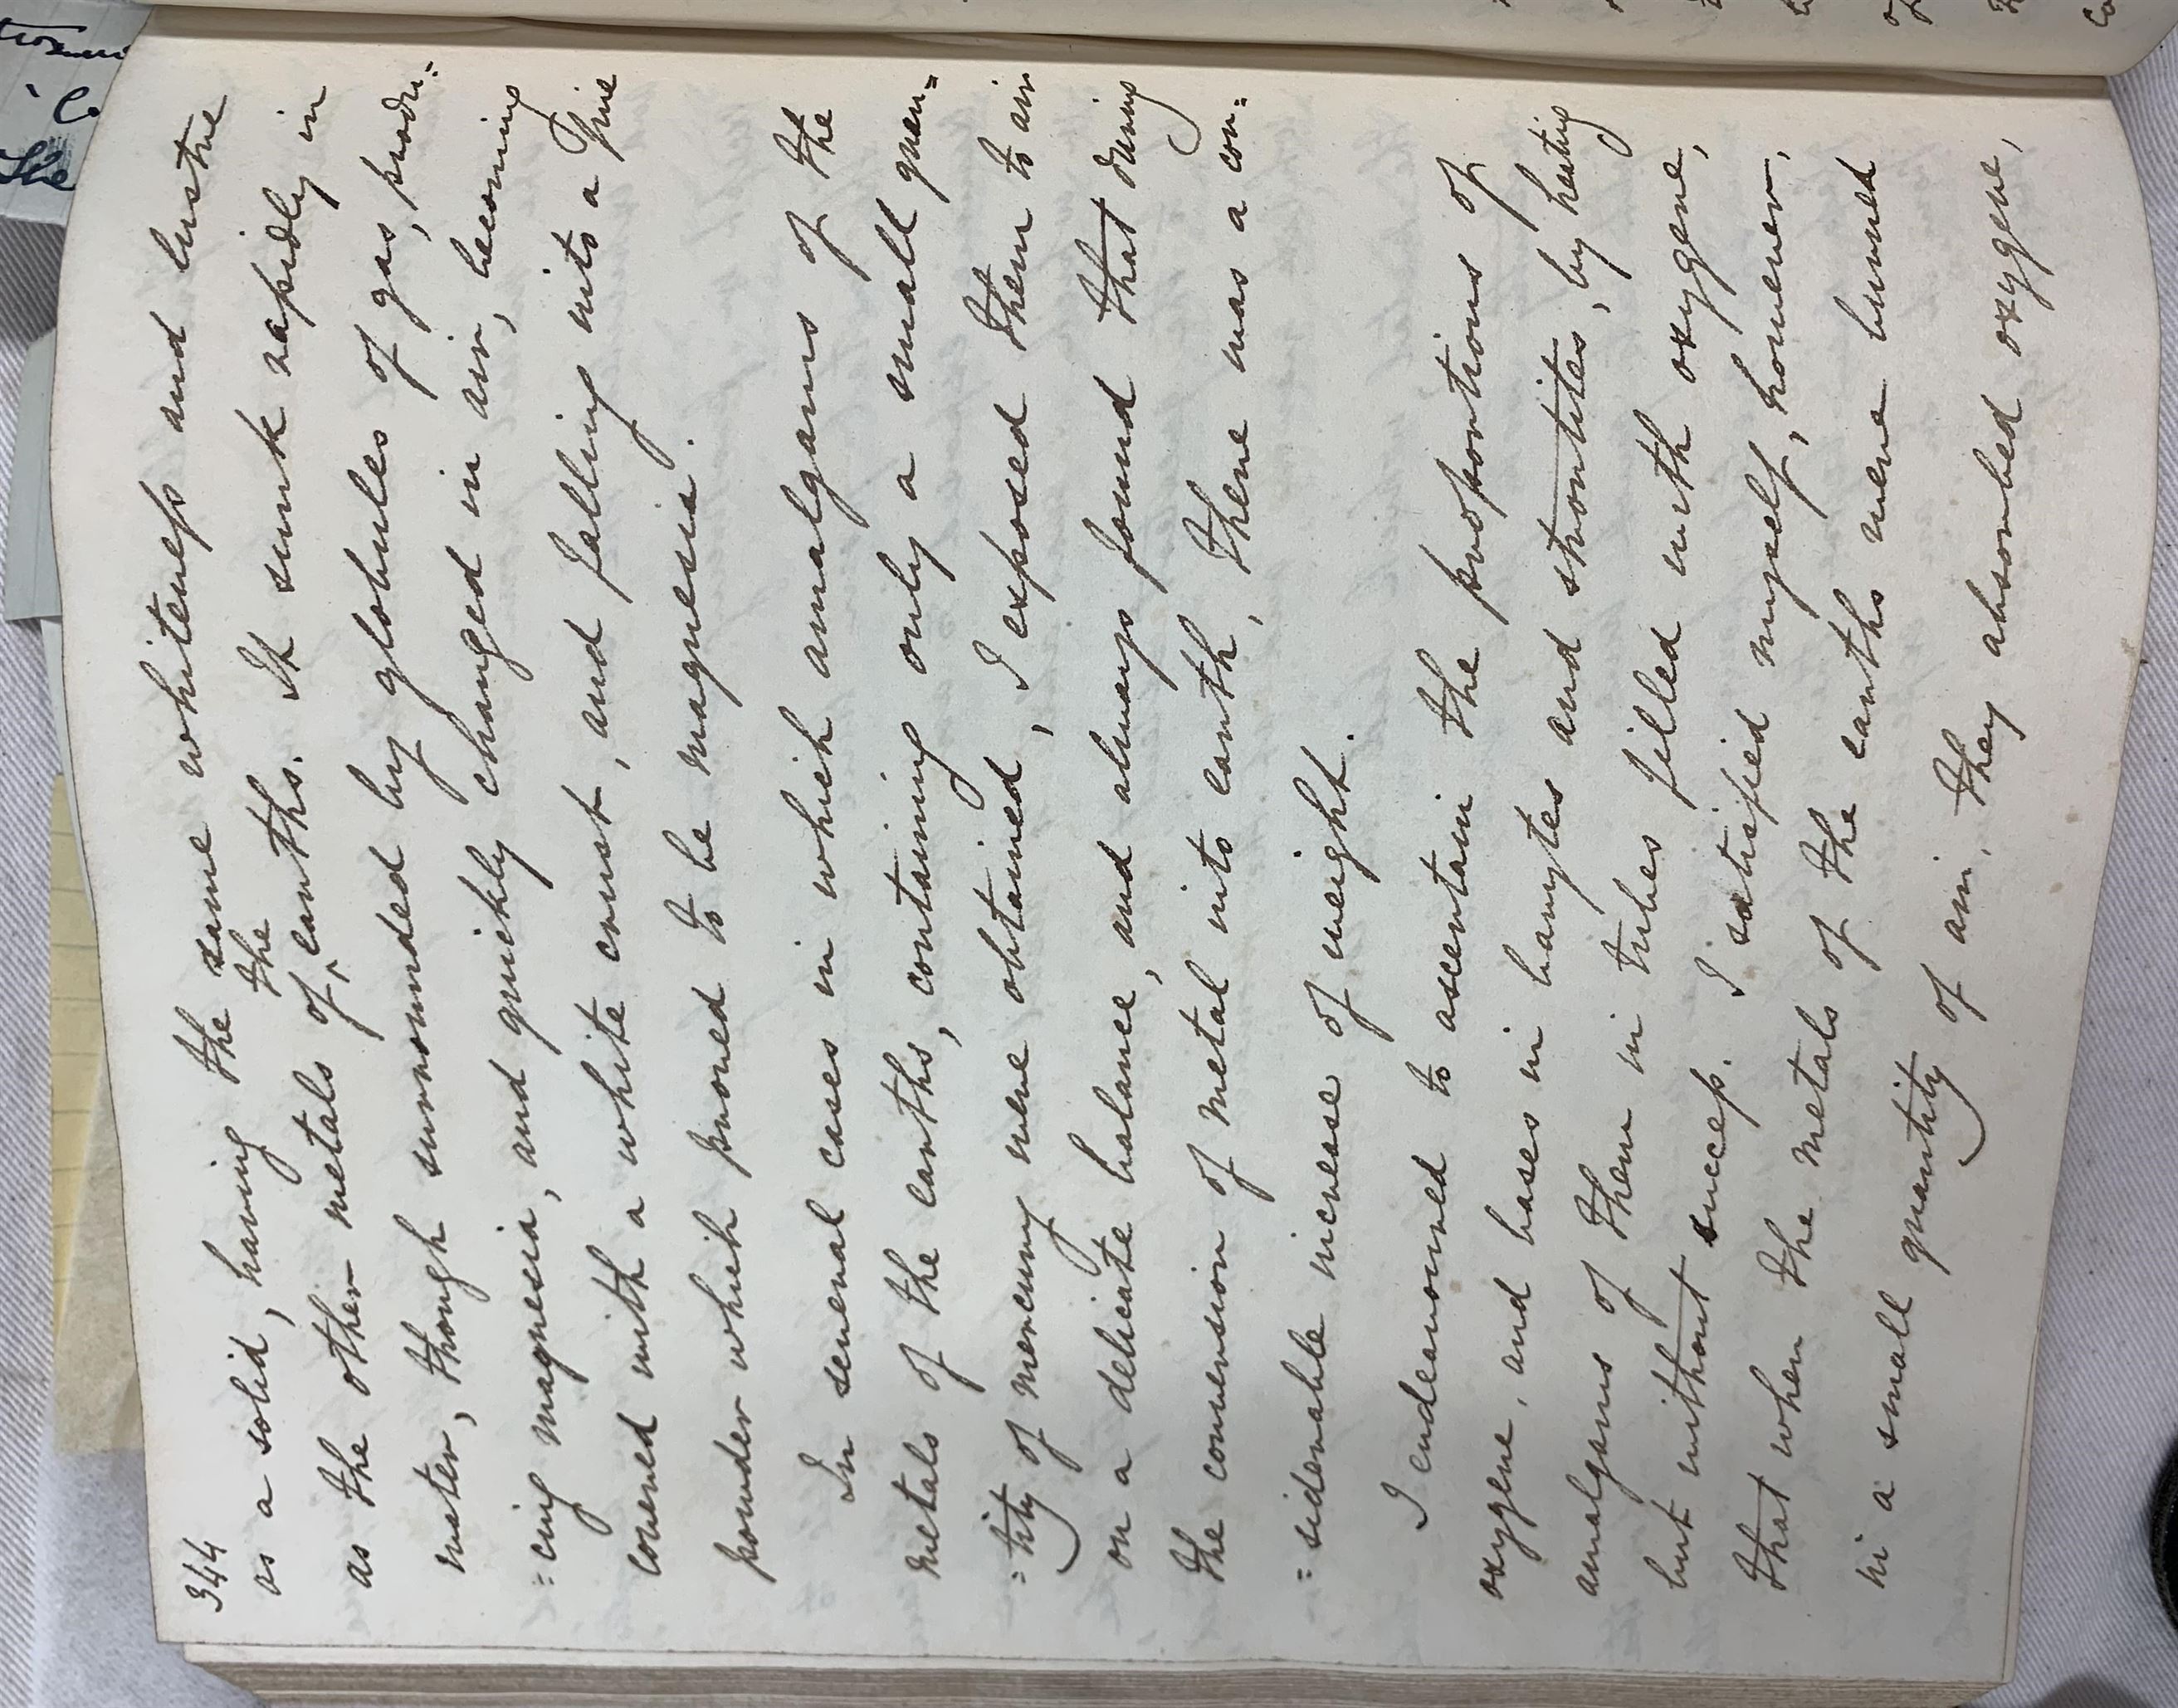 344
as a solid, having the same whiteness and lustre
as the other metals of the earths. It sunk rapidly in
water, though surrounded by globules of gas, produ=
=cing magnesia, and quickly changed in air, becoming
covered with a white crust, and falling into a fine
powder which proved to be magnesia.
In several cases in which amalgams of the
metals of the earths, containing only a small quan=
=tity of mercury were obtained, I exposed them to air
on a delicate balance, and always found that during
the conversion of metal into earth, there was a con=
=siderable increase of weight.
I endeavoured to ascertain the proportions of
oxygene, and bases in barytes and strontites, by heating
amalgams of them in tubes filled with oxygene,
but without success. I satisfied myself, however,
that when the metals of the earths were burned
in a small quantity of air, they absorbed oxygene,